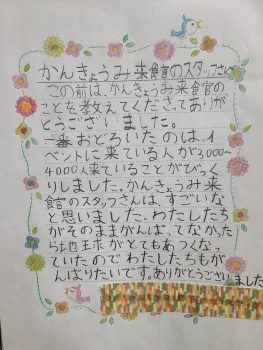 かんきょうみ来食官のスタッフさんへ
この前は、かんきょうみ来食官の
ことを教えてくださってありが
とうございました。
一番おどろいたのは、イ
ベントに来ている人が3,000〜
4000人来ていることがびっく
りしました。かんきょうみ来
食官のスタッフさんは、すごいな
と思いました。わたしたち
がそのままがんばってなかった
ら地球がとてもあつくなっ
ていたのでわたしたちもが
んばりたいです。ありがとうございました